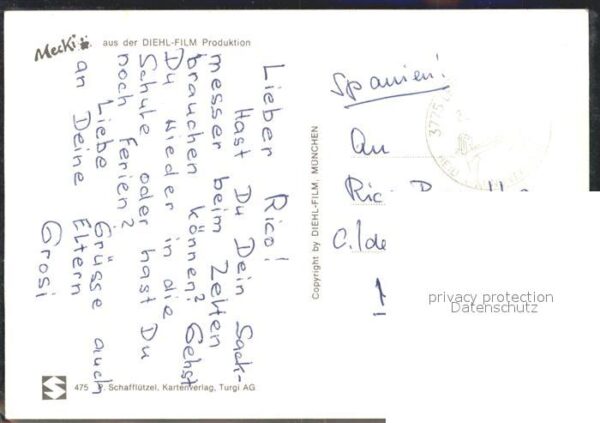 Mecki aus der DIEHL-FILM Produktion
Lieber Rico!
Hast Du Dein Sack-
messer beim Zelten
brauchen können? Gehst
Du wieder in die
Schule oder hast Du
noch Ferien?
Liebe Grüsse auch
an Deine Eltern
Grosi
Copyright by DIEHL-FILM, MÜNCHEN
Spanien!
An
C./de
3775
privacy protection
Datenschutz
475 Schafflützel, Kartenverlag, Turgi AG